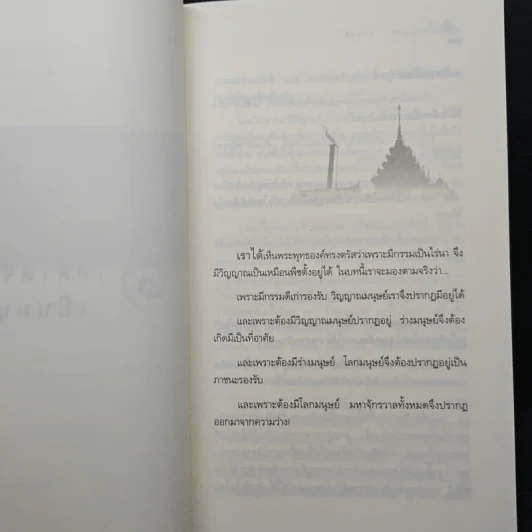 เราได้เห็นพระพุทธองค์ทรงตรัสว่าเพราะมีกรรมเป็นไร่นา จึง
มีวิญญาณเป็นเหมือนพืชตั้งอยู่ได้ ในบทนี้เราจะมองตามจริงว่า...
เพราะมีกรรมดีเก่ารองรับ วิญญาณมนุษย์เราจึงปรากฏมีอยู่ได้
และเพราะต้องมีวิญญาณมนุษย์ปรากฏอยู่ ร่างมนุษย์จึงต้อง
เกิดมีเป็นที่อาศัย
และเพราะต้องมีร่างมนุษย์ โลกมนุษย์จึงต้องปรากฏอยู่เป็น
ภาชนะรองรับ
และเพราะต้องมีโลกมนุษย์ มหาจักรวาลทั้งหมดจึงปรากฏ
ออกมาจากความว่าง!